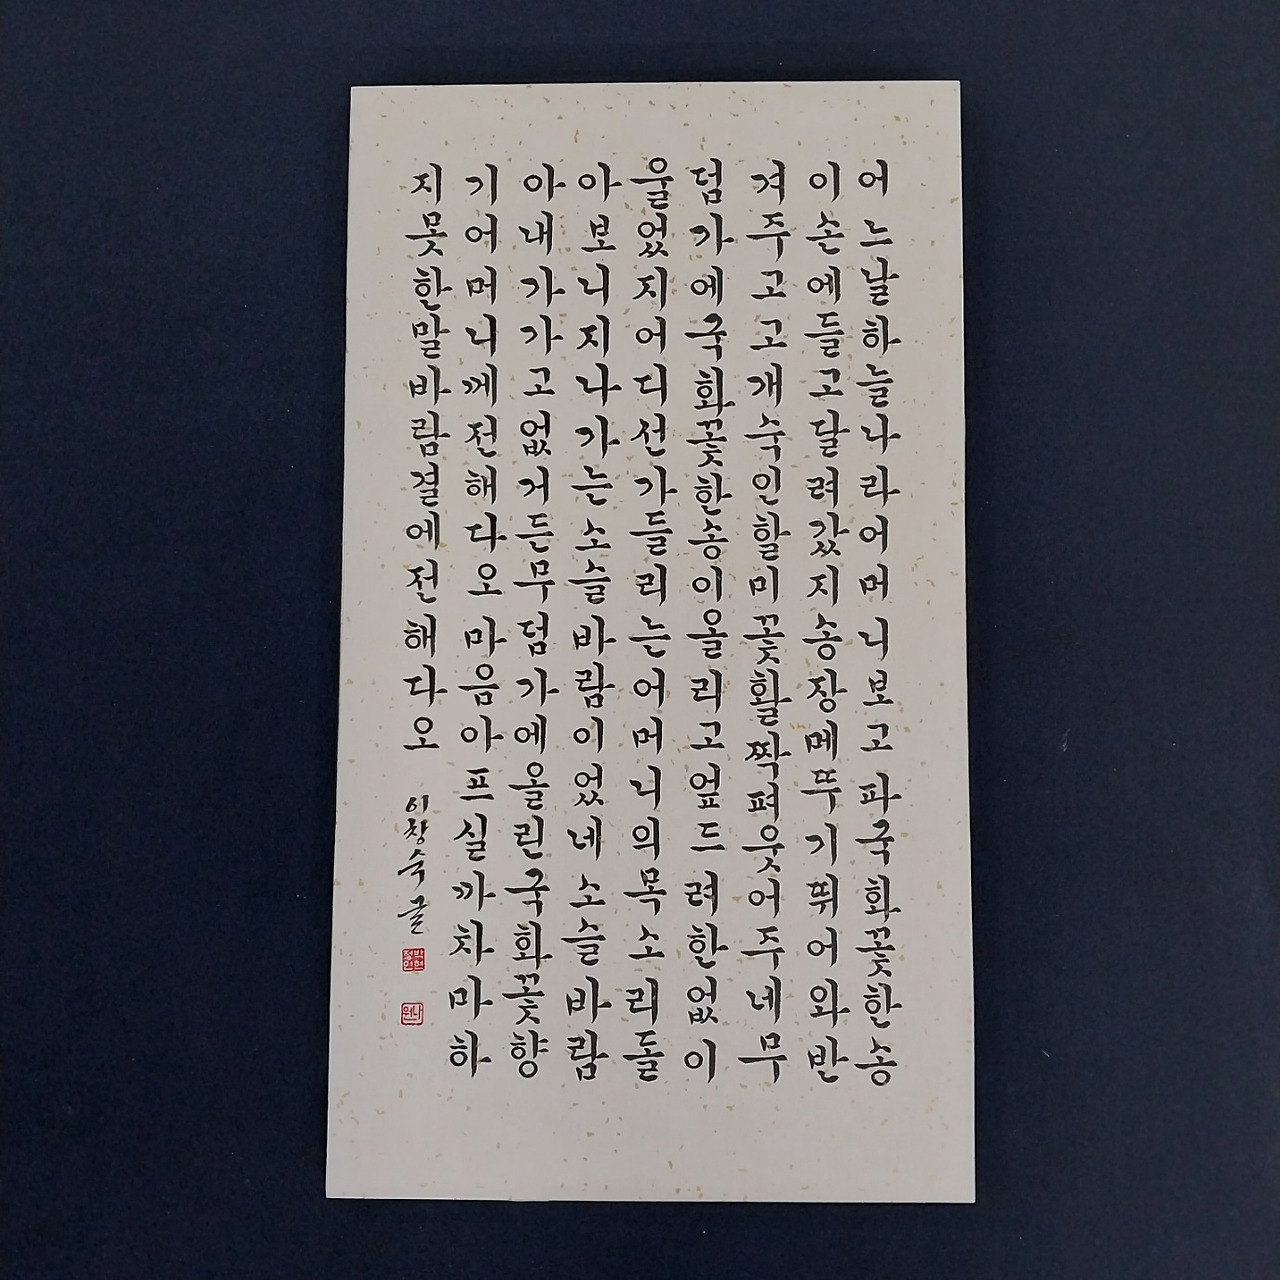 어느날하늘나라어머니보고파국화꽃한송
이손에들고달려갔지송장메뚜기뛰어와반
겨주고고개숙인할미꽃활짝펴웃어주네무
덤가에국화꽃한송이올리고엎드려한없이
울었지어디선가들리는어머니의목소리돌
아보니지나가는소슬바람이었네소슬바람
아내가가고없거든무덤가에올린국화꽃향
기어머니께전해다오마음아프실까차마하
지못한말바람결에전해다오
이창숙글
박현
정인
나원